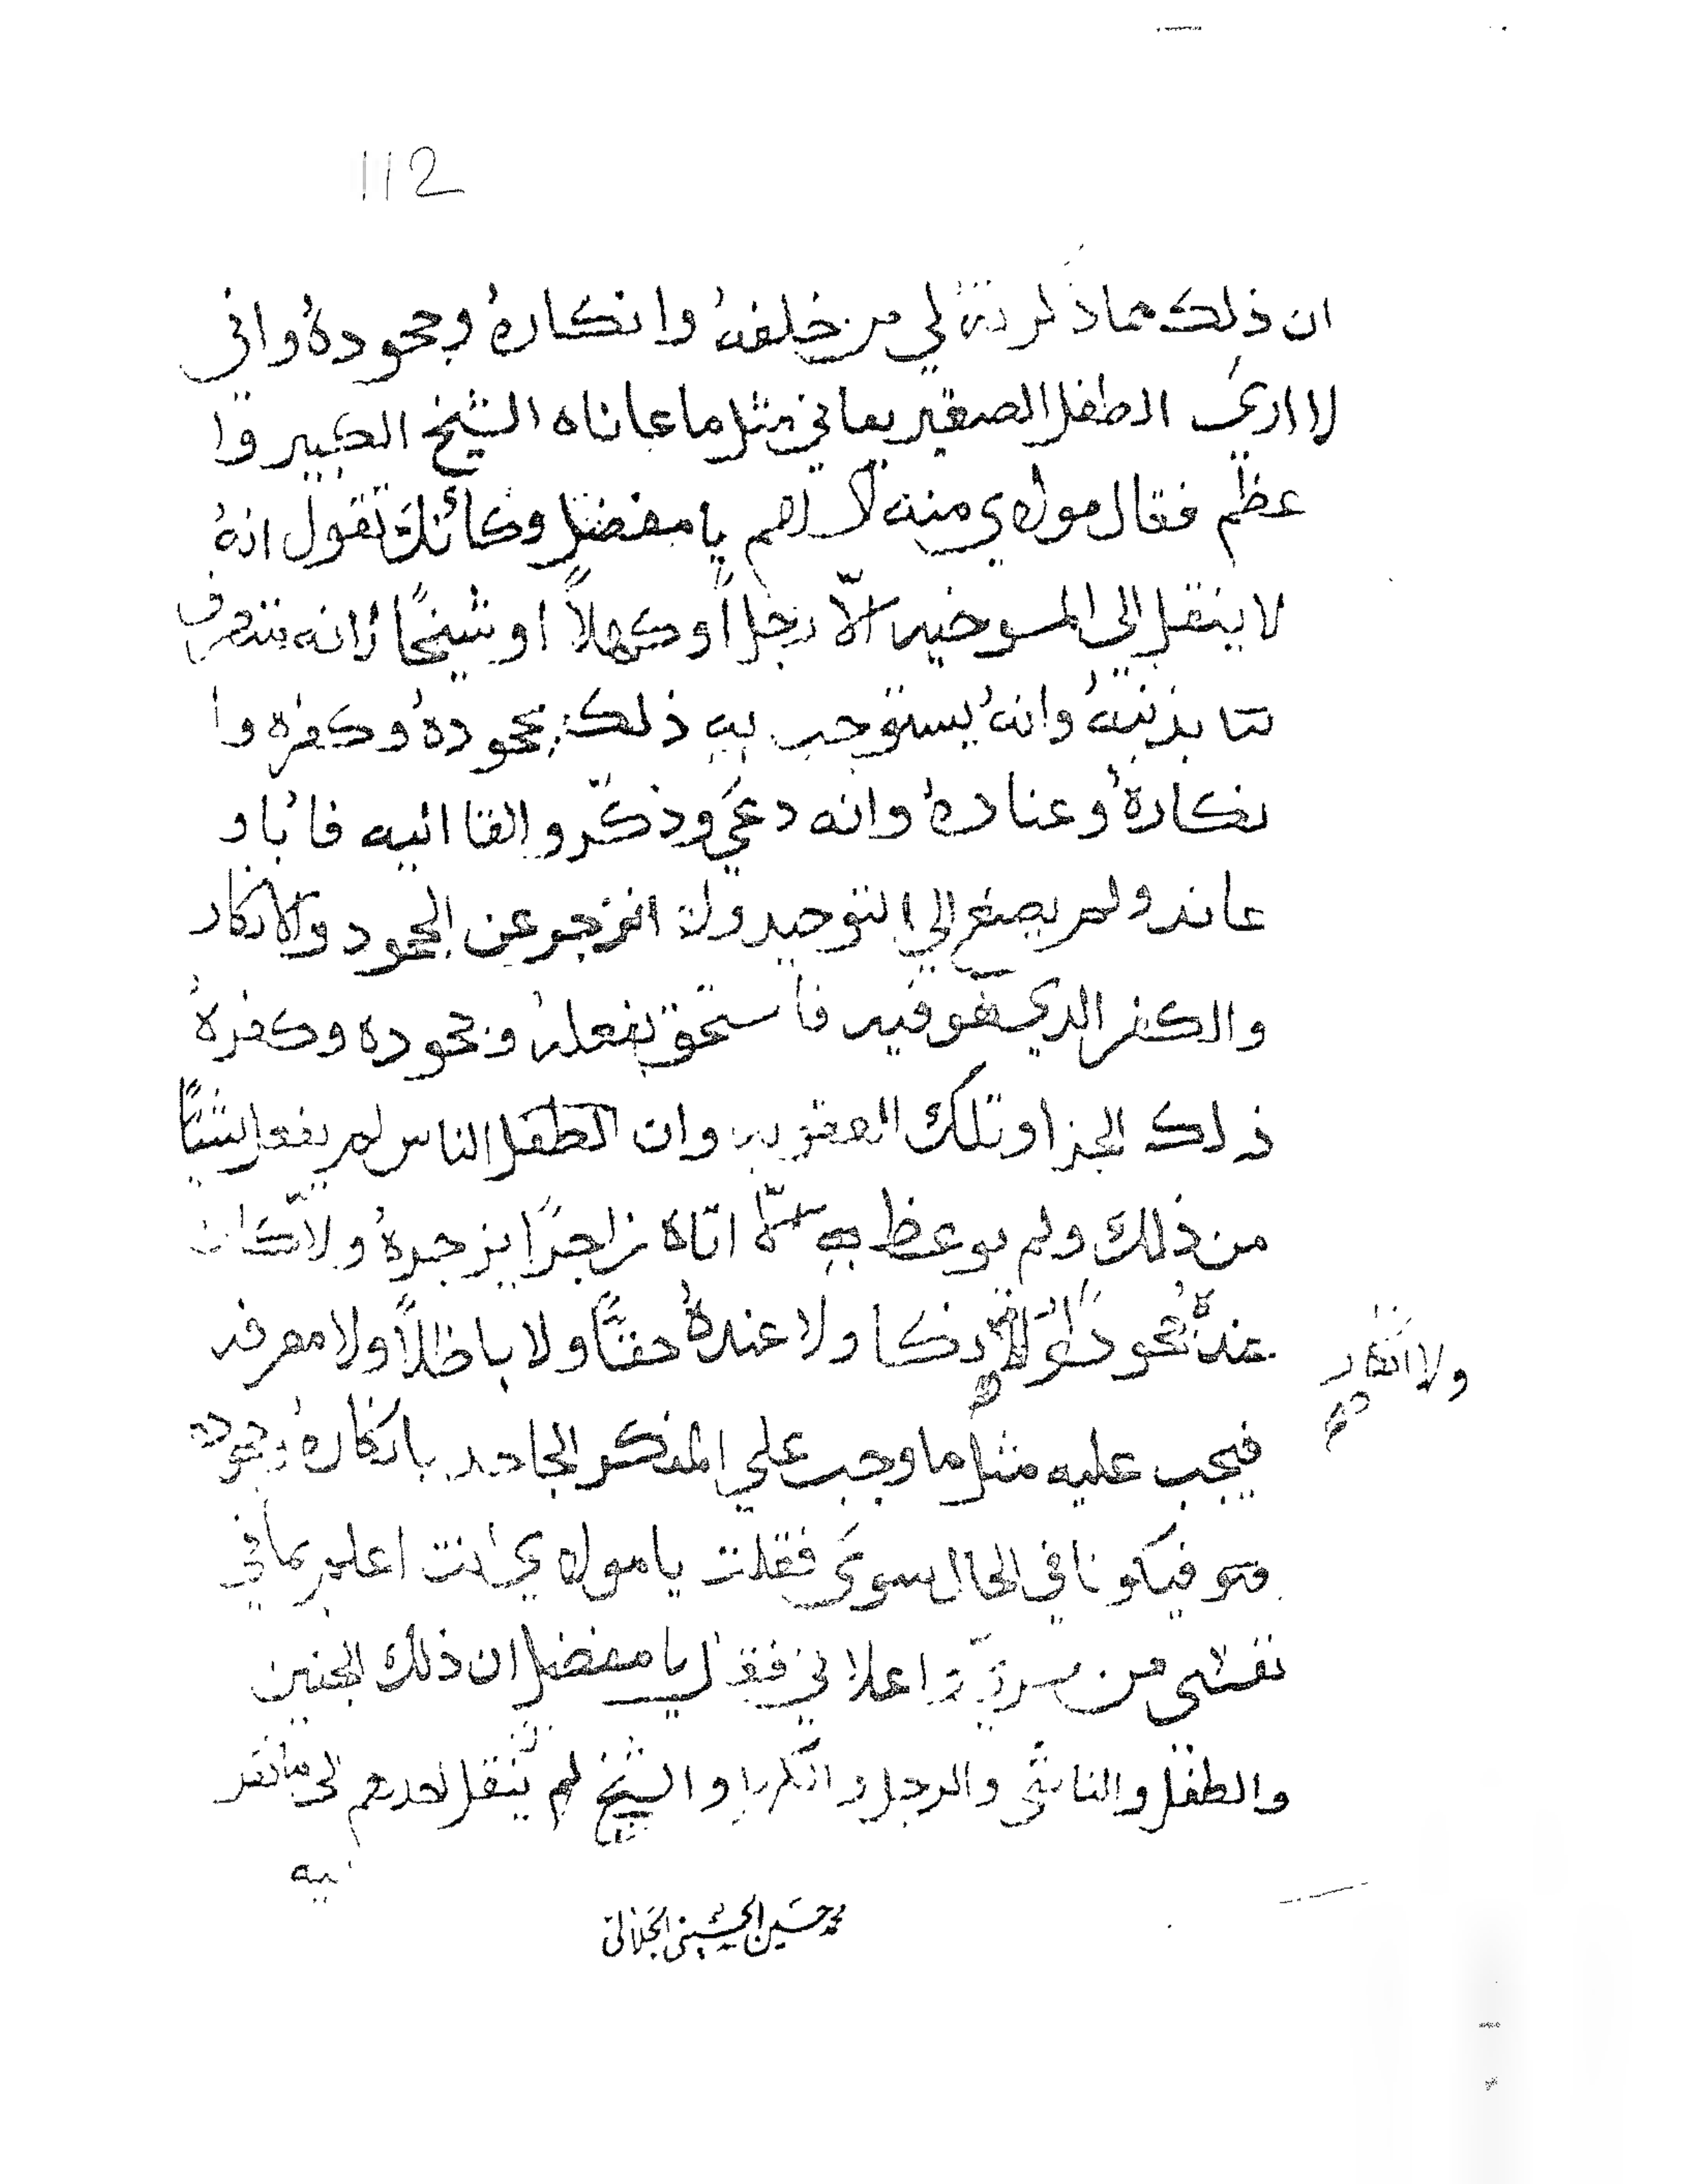 112
ان ذلك مما ذكرته لي من خلفهُ وانكارهُ وجحودهُ واني
لا اريَ الطفل الصغير يعاني مثل ما عاناه الشيخ الكبير وا
عظم فقال مولاي منه السلام يا مفضل وكأنك تقول انهُ
لا ينقل الى المسوخيه الّا رجلاً او كهلاً او شيخًا لانه
بذنبهُ وانهُ يستوجب به ذلك بجحودهُ وكفره وا
نكارهُ وعنادهُ وانه دعيَ وذكّر والقا اليه فابا و
عاند ولم يصغ الي التوحيد ولا انزجر عن الجحود والانكار
والكفر الدي هو فيه فاستحق بفعلهُ وجحوده وكفرهُ
ذلك الجزا وتلك العقوبه وان الطفل الناس لم يفعل شيًا
من ذلك ولم يوعظ به ولا اتاه زاجرًا يزجرهُ ولا كان
عندهُ جحود ذكا ولا عندهُ حقًا ولا باطلاً ولا معرفه
ولا انكار
فيجب عليه مثل ما وجب علي المنكر الجاحد بانكارهُ وجحوده
فيكونا في الحال سويَ فقلت يا مولاي انت اعلم بما في
نفسي من اعلاني فقال يا مفضل ان ذلك الجنين
والطفل والناشي والرجل والكهل والشيخ لم ينقل احدهم الى
يه
محمد حسين الحسيني الجلالي